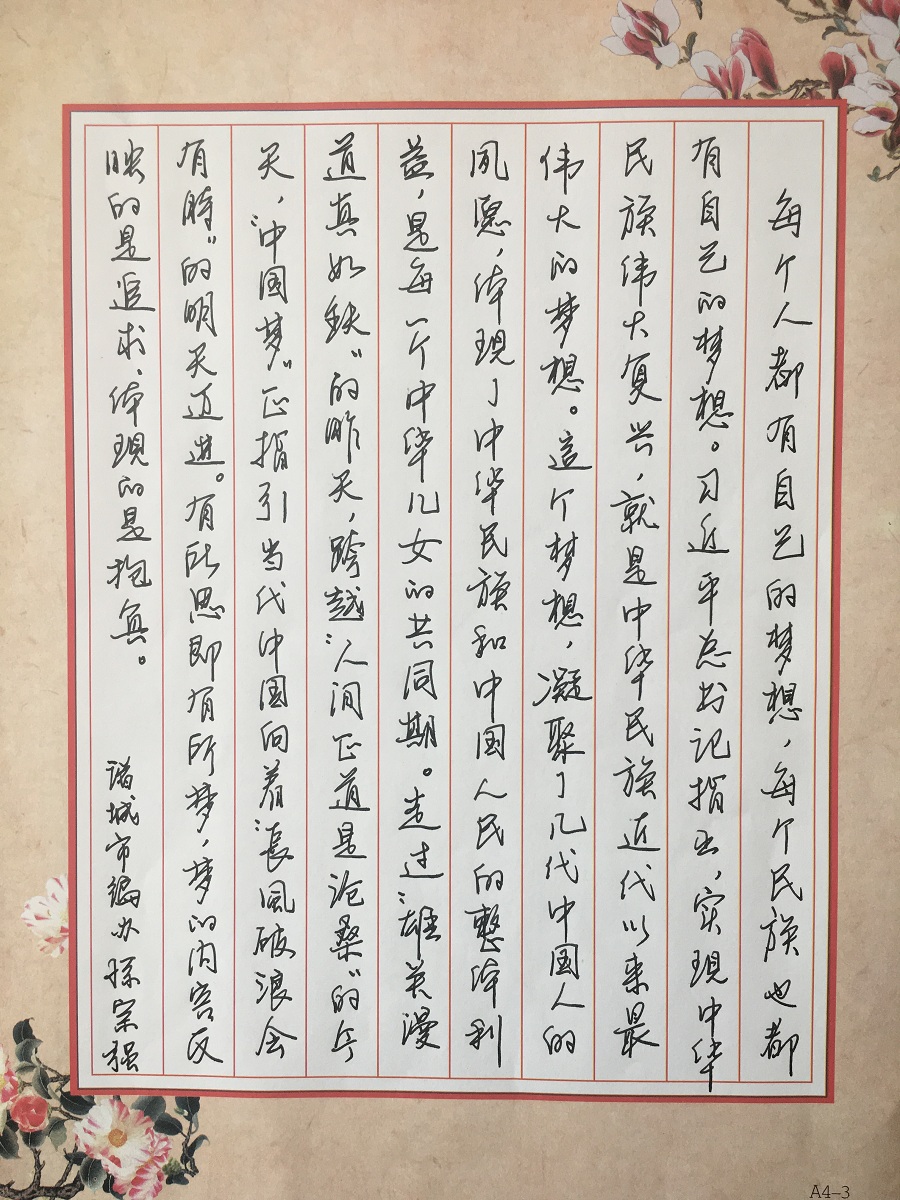 每个人都有自己的梦想，每个民族也都
有自己的梦想。习近平总书记指出，实现中华
民族伟大复兴，就是中华民族近代以来最
伟大的梦想。这个梦想，凝聚了几代中国人的
夙愿，体现了中华民族和中国人民的整体利
益，是每一个中华儿女的共同期。走过“雄关漫
道真如铁”的昨天，跨越“人间正道是沧桑”的今
天，“中国梦”正指引当代中国向着“長風破浪会
有時”的明天迈進。有所思即有所梦，梦的内容反
映的是追求、体現的是抱負。
诸城市編办 孫宗强
A4-3